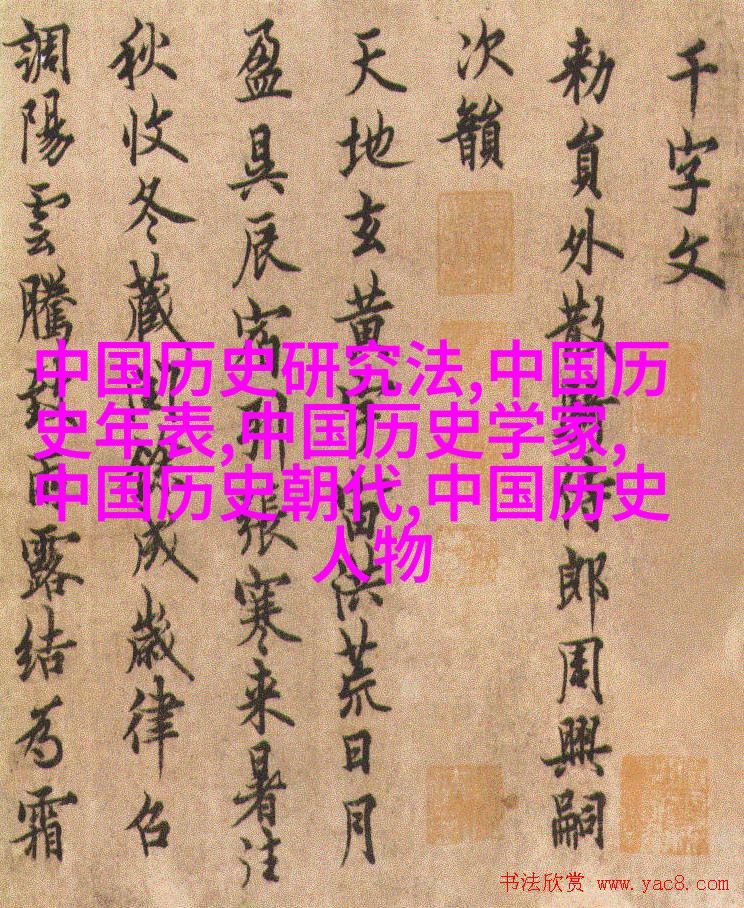 千字文
勅員外散騎侍郎周興嗣
次韻
天地玄黄宇宙洪荒日月
盈昃辰宿列張寒来暑往
秋收冬藏閏餘成歲律召
調陽雲騰致雨露結為霜
中国历史研究法,中国历
史年表,中国历史学家,
中国历史朝代,中国历史
人物
书法欣赏 www.yac8.com